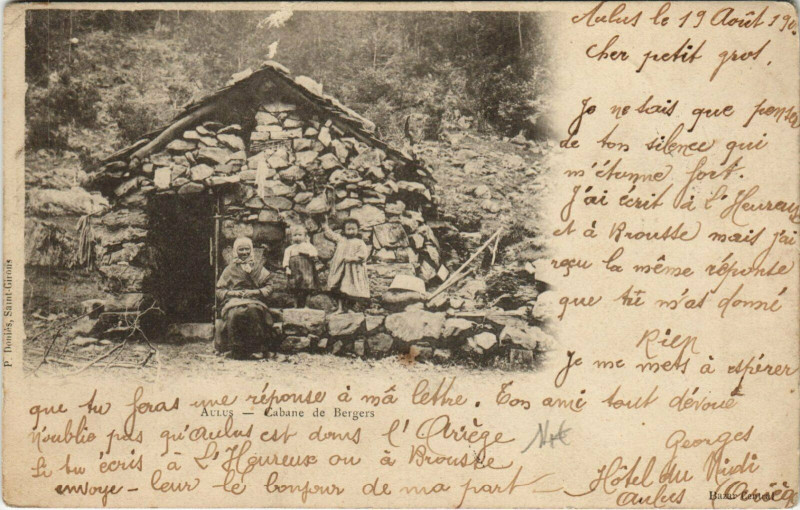 Aulus le 19 Août 190
Cher petit gros,
Je ne sais que penser
de ton silence qui
m'étonne fort.
J'ai écrit à L'Heureux
et à Brousse mais j'ai
reçu la même réponse
que tu m'as donné
Rien
Je me mets à espérer
que tu feras une réponse à ma lettre. Ton ami tout dévoué
N'oublie pas qu'Aulus est dans l'Ariège
Georges
Si tu écris à L'Heureux ou à Brousse
Hôtel du Midi
envoye-leur le bonjour de ma part
Aulus (Ariège
AULUS — Cabane de Bergers
P. Doniès, Saint-Girons
Bazar Central